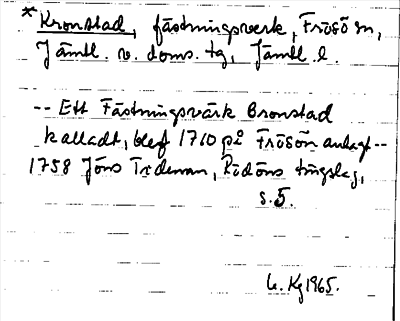 * Kronstad, fästningsverk, Frösö sn,
Jämtl. v. doms. tg, Jämtl. l.
-- Ett Fästningsvärk Cronstad
kalladt, blef 1710 på Frösön anlagt --
1758 Jöns Tideman, Rödöns tingslag,
s. 5.
Kg 1965.